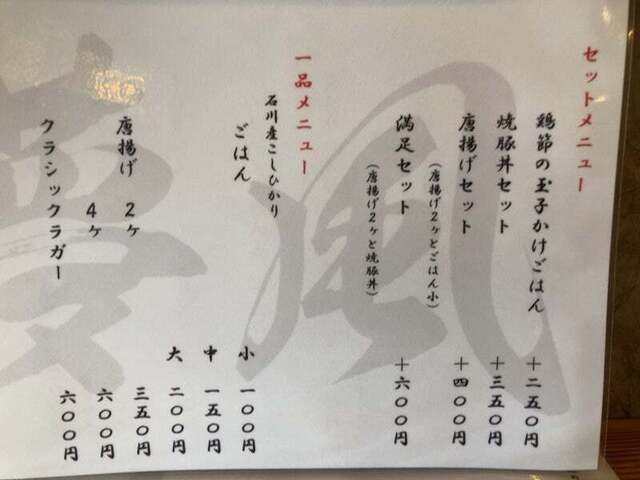 セットメニュー
鶏節の玉子かけごはん ＋二五〇円
焼豚丼セット ＋三五〇円
唐揚げセット ＋四〇〇円
（唐揚げ２ヶとごはん小）
満足セット ＋六〇〇円
（唐揚げ２ヶと焼豚丼）
一品メニュー
石川産こしひかり
ごはん 小 一〇〇円
中 一五〇円
大 二〇〇円
唐揚げ ２ヶ 三五〇円
４ヶ 六〇〇円
クラシックラガー 六〇〇円
夢風